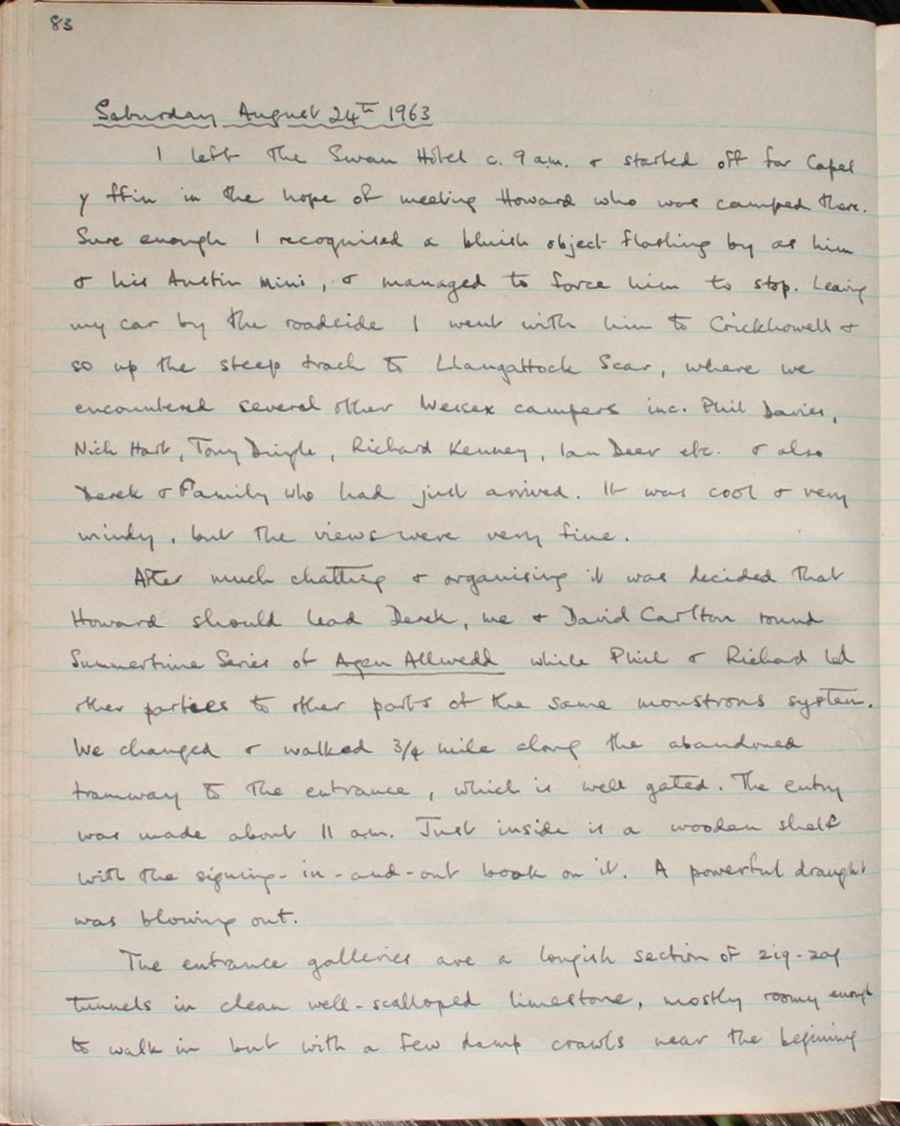 83
Saturday August 24th 1963
I left the Swan Hotel c. 9 a.m. & started off for Capel
y ffin in the hope of meeting Howard who was camped there.
Sure enough I recognised a bluish object flashing by as him
& his Austin Mini, & managed to force him to stop. Leaving
my car by the roadside I went with him to Crickhowell &
so up the steep track to Llangattock Scar, where we
encountered several other Wessex campers inc. Phil Davies,
Nich Hart, Tony Dingle, Richard Kenney, Ian Deer etc. & also
Derek & Family who had just arrived. It was cool & very
windy, but the views were very fine.
After much chatting & organising it was decided that
Howard should lead Derek, me & David Carlton round
Summertime Series of Agen Allwedd while Phil & Richard led
other parties to other parts of the same monstrous system.
We changed & walked 3/4 mile along the abandoned
tramway to the entrance, which is well gated. The entry
was made about 11 a.m. Just inside is a wooden shelf
with the signing-in-and-out book on it. A powerful draught
was blowing out.
The entrance galleries are a longish section of zig-zag
tunnels in clean well-scalloped limestone, mostly roomy enough
to walk in but with a few damp crawls near the begining